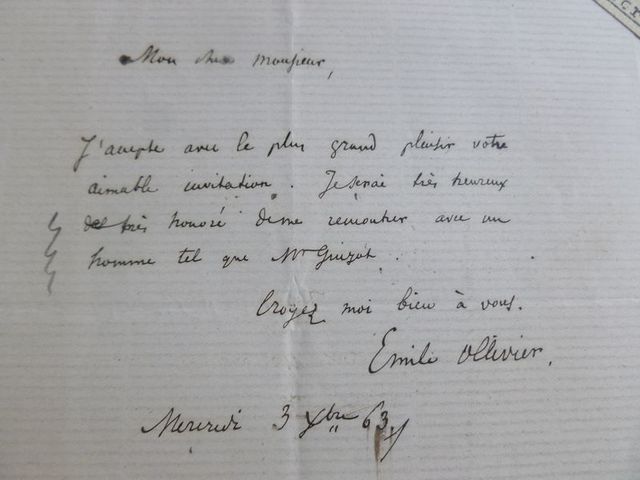 Mon cher monsieur,
J'accepte avec le plus grand plaisir votre
aimable invitation. Je serai très heureux
et très honoré de me rencontrer avec un
homme tel que Mr Guizot.
Croyez moi bien à vous.
Emile Ollivier.
Mercredi 3 Xbre 63